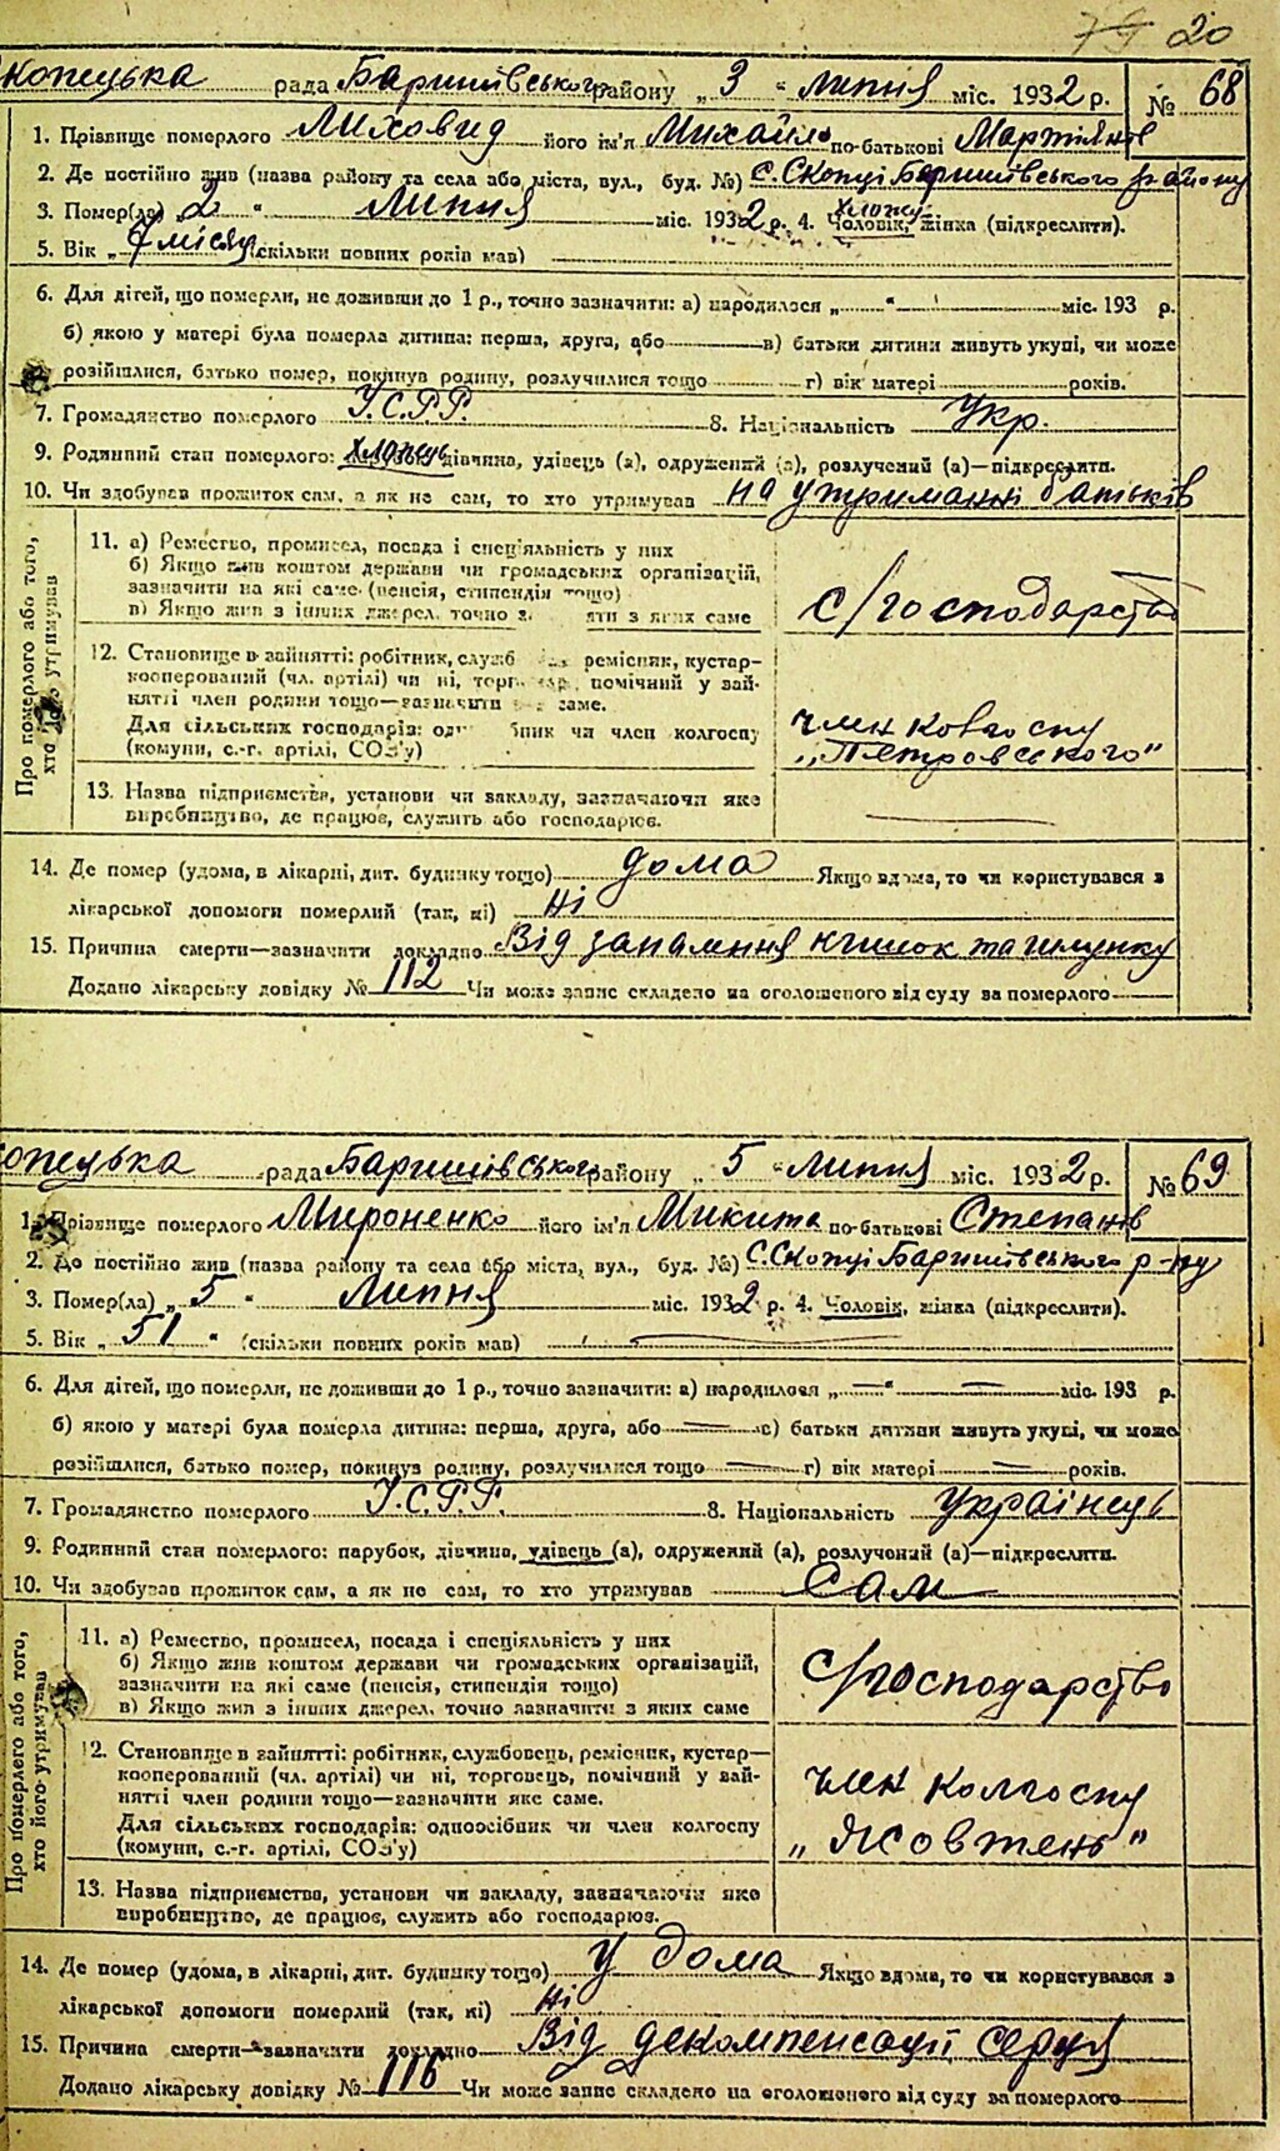 79 20
Скопецька рада Баришівського району „3“ липня міс. 1932 р. № 68
1. Прізвище померлого Лиховид його ім'я Михайло по-батькові Мартянов
2. Де постійно жив (назва району та села або міста, вул., буд. №) с. Скопці Баришівського району
3. Помер(ла) „2“ Липня міс. 1932 р. 4. хлопець Чоловік, жінка (підкреслити).
5. Вік „7 місяц (скільки повних років мав)
6. Для дітей, що померли, не доживши до 1 р., точно зазначити: а) народилося „ “ міс. 193 р.
б) якою у матері була померла дитина: перша, друга, або в) батьки дитини живуть укупі, чи може
розійшлися, батько помер, покинув родину, розлучилися тощо г) вік матері років.
7. Громадянство померлого У.С.Р.Р. 8. Національність Укр.
9. Родинний стан померлого: хлопець дівчина, удівець (а), одружений (а), розлучений (а)—підкреслити.
10. Чи здобував прожиток сам, а як не сам, то хто утримував на утриманні батьків
Про померлого або того, хто його утримував
11. а) Ремество, промисел, посада і спеціяльність у них
б) Якщо жив коштом держави чи громадських організацій,
зазначити на які саме (пенсія, стипендія тощо)
в) Якщо жив з інших джерел, точно з яти з яких саме
с/господарство
12. Становище в зайнятті: робітник, служб ремісник, кустар-
кооперований (чл. артілі) чи ні, торг помічний у зай-
нятті член родини тощо—зазначити саме.
Для сільських господарів: од бник чи член колгоспу
(комуни, с.-г. артілі, СОЗ'у)
член ковгоспу
„Петровського“
13. Назва підприємства, установи чи закладу, зазначаючи яке
виробництво, де працює, служить або господарює.
14. Де помер (удома, в лікарні, дит. будинку тощо) дома Якщо вдома, то чи користувався з
лікарської допомоги померлий (так, ні) ні
15. Причина смерти—зазначити докладно Від запалення кишок та шлунку
Додано лікарську довідку № 112 Чи може запис складено на оголошеного від суду за померлого
Скопецька рада Баришівського району „5“ липня міс. 1932 р. № 69
1. Прізвище померлого Мироненко його ім'я Микита по-батькові Степанів
2. Де постійно жив (назва району та села або міста, вул., буд. №) С. Скопці Баришівського р-ну
3. Помер(ла) „5“ Липня міс. 1932 р. 4. Чоловік, жінка (підкреслити).
5. Вік „51“ (скільки повних років мав)
6. Для дітей, що померли, не доживши до 1 р., точно зазначити: а) народилося „—“ — міс. 193 р.
б) якою у матері була померла дитина: перша, друга, або — в) батьки дитини живуть укупі, чи може
розійшлися, батько помер, покинув родину, розлучилися тощо — г) вік матері — років.
7. Громадянство померлого У.С.Р.Р. 8. Національність Українець
9. Родинний стан померлого: парубок, дівчина, удівець (а), одружений (а), розлучений (а)—підкреслити.
10. Чи здобував прожиток сам, а як не сам, то хто утримував Сам
Про померлого або того, хто його утримував
11. а) Ремество, промисел, посада і спеціяльність у них
б) Якщо жив коштом держави чи громадських організацій,
зазначити на які саме (пенсія, стипендія тощо)
в) Якщо жив з інших джерел, точно зазначити з яких саме
с/господарство
12. Становище в зайнятті: робітник, службовець, ремісник, кустар—
кооперований (чл. артілі) чи ні, торговець, помічний у зай-
нятті член родини тощо—зазначити яке саме.
Для сільських господарів: одноосібник чи член колгоспу
(комуни, с.-г. артілі, СОЗ'у)
член колгоспу
„Жовтень“
13. Назва підприємства, установи чи закладу, зазначаючи яке
виробництво, де працює, служить або господарює.
14. Де помер (удома, в лікарні, дит. будинку тощо) у дома Якщо вдома, то чи користувався з
лікарської допомоги померлий (так, ні) ні
15. Причина смерти—зазначити докладно Від декомпенсації серця
Додано лікарську довідку № 116 Чи може запис складено на оголошеного від суду за померлого